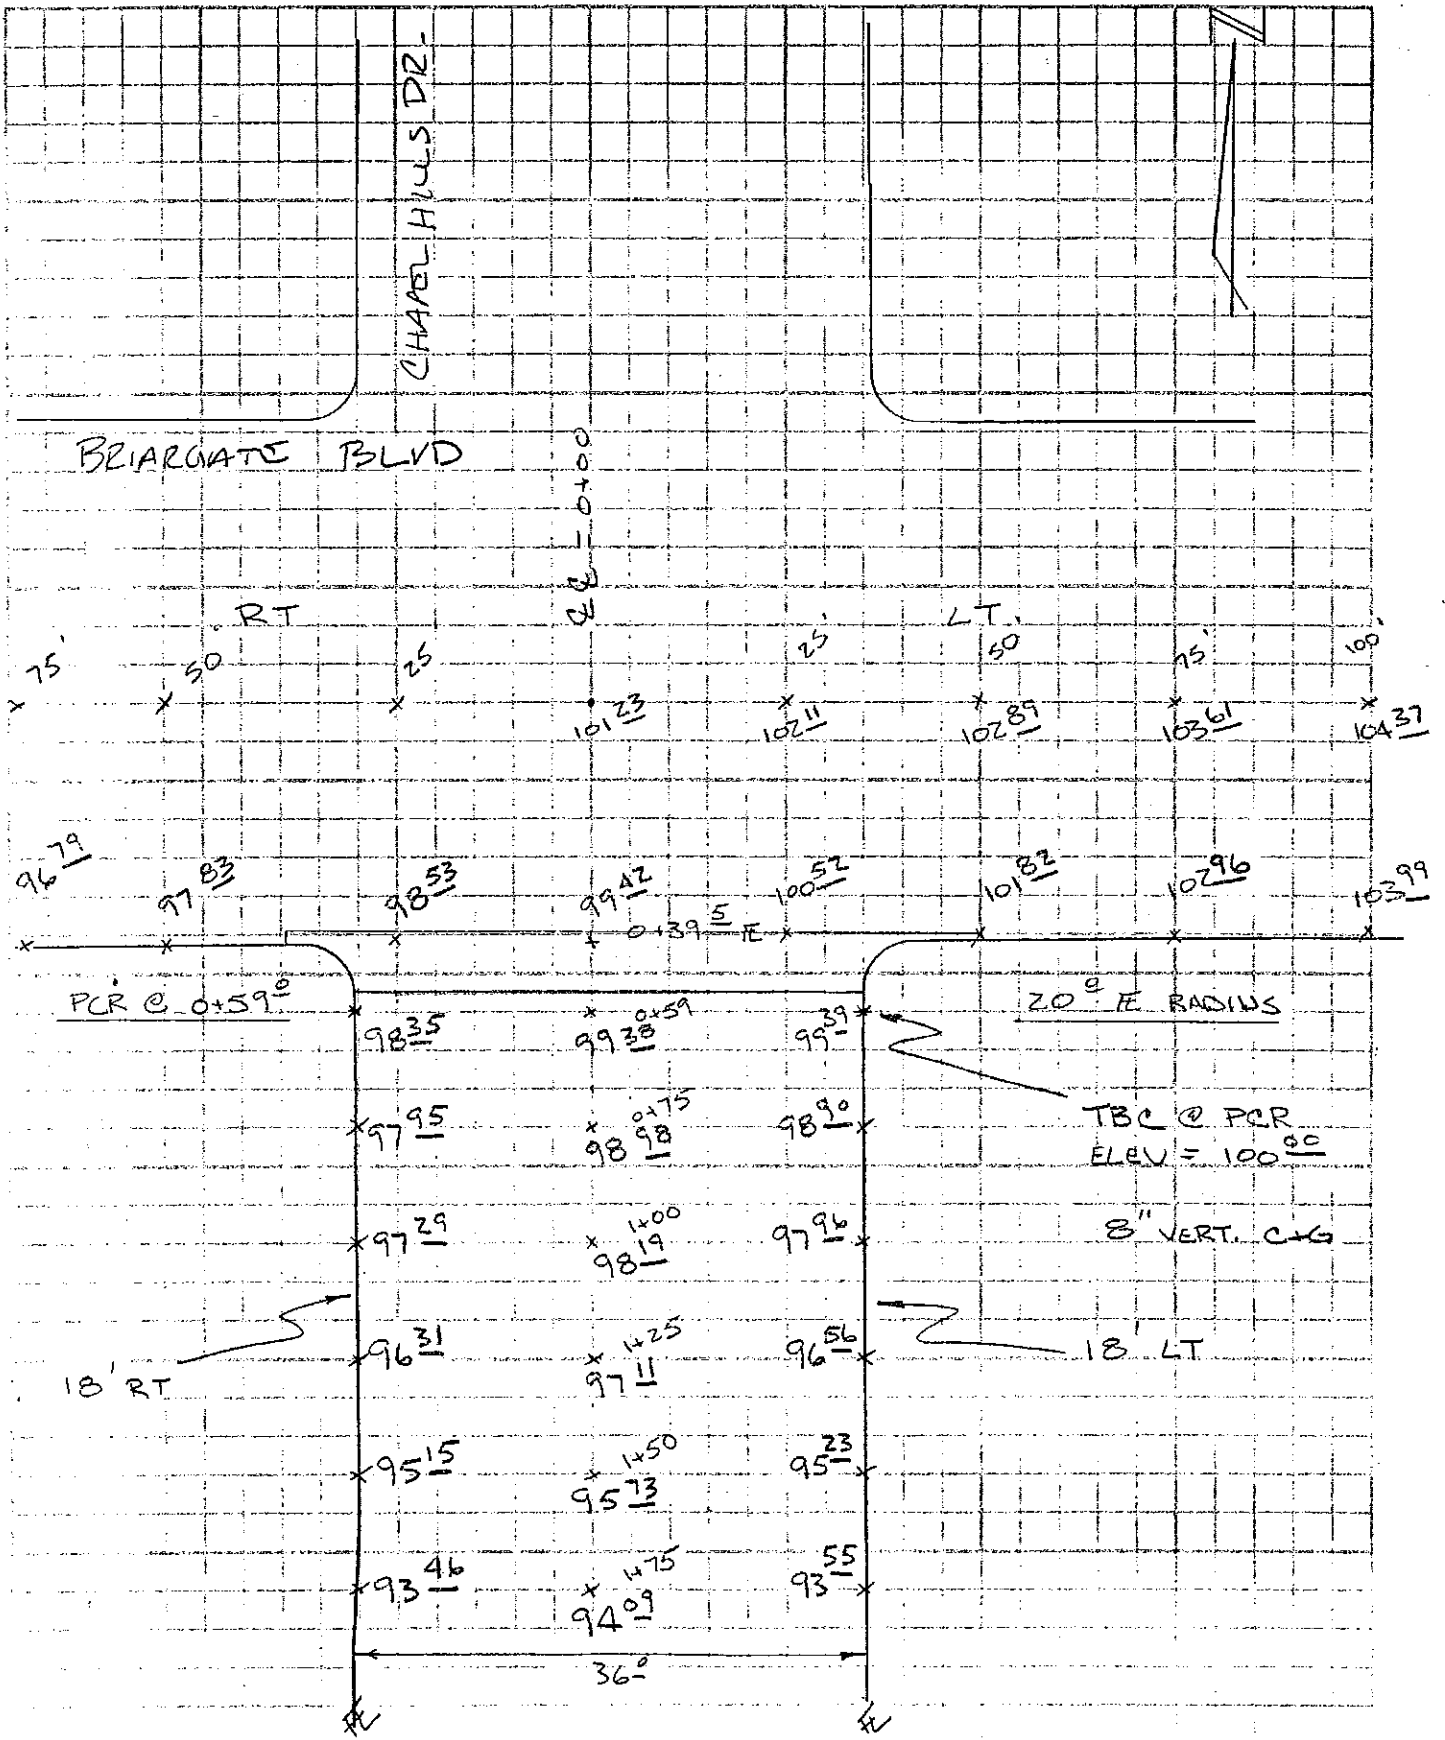 N
CHAPEL HILLS DR.
BRIARGATE BLVD
℄℄ = 0+00
RT
LT.
75' 50 25 25' 50 75' 100'
101 23 102 11 102 89 103 61 104 37
96 79 97 83 98 53 99 42 100 52 101 82 102 96 103 99
0+39 5 FE
PCR @ 0+59 0
20 0 FE RADIUS
0+59
98 35 99 38 99 39
TBC @ PCR
ELEV = 100 00
0+75
97 95 98 98 98 90
8" VERT. C+G
1+00
97 29 98 19 97 96
1+25
96 31 97 11 96 56
18' RT
18' LT
1+50
95 15 95 73 95 23
1+75
93 46 94 09 93 55
36 0
FL FL